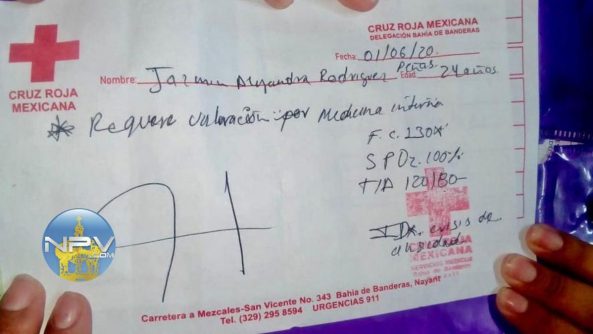 CRUZ ROJA MEXICANA
DELEGACIÓN BAHÍA DE BANDERAS
Fecha: 01/06/20.
CRUZ ROJA
MEXICANA
Nombre: Jazmin Alejandra Rodriguez Peñas. Edad 24 años
Requiere valoración por medicina interna
F.C. 130x
SPO2. 100%
T/A 120/80
IDx. crisis de
ansiedad
CRUZ ROJA
MEXICANA
SERVICIOS MEDICOS
Bahía de Banderas
NPV
.COM
Carretera a Mezcales-San Vicente No. 343 Bahía de Banderas, Nayarit
Tel. (329) 295 8594 URGENCIAS 911